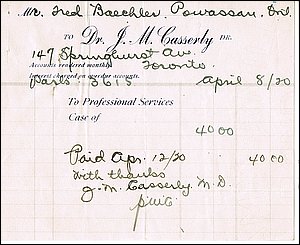 Mr. Fred Baechler, Powassan, Ont.
TO Dr. J. M. Casserly DR.
147 Springhurst Ave
Toronto
Accounts rendered monthly
Interest charged on overdue accounts.
Park. 3613 April 8/20
To Professional Services
Case of
40 00
Paid Apr. 12/20 40 00
With thanks
J. M. Casserly M. D.